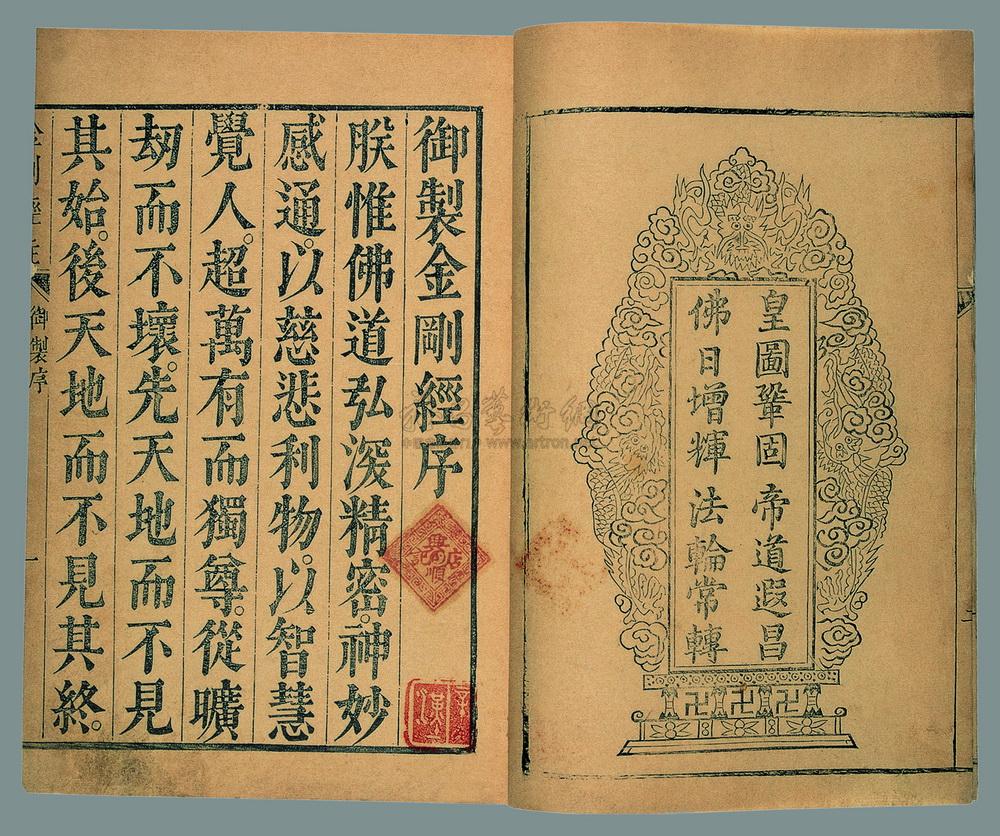 皇圖鞏固 帝道遐昌
佛日增輝 法輪常轉
御製金剛經序
朕惟佛道弘深精密。神妙
感通。以慈悲利物。以智慧
覺人。超萬有而獨尊。從曠
劫而不壞。先天地而不見
其始。後天地而不見其終。
御製序
一
www.artron.